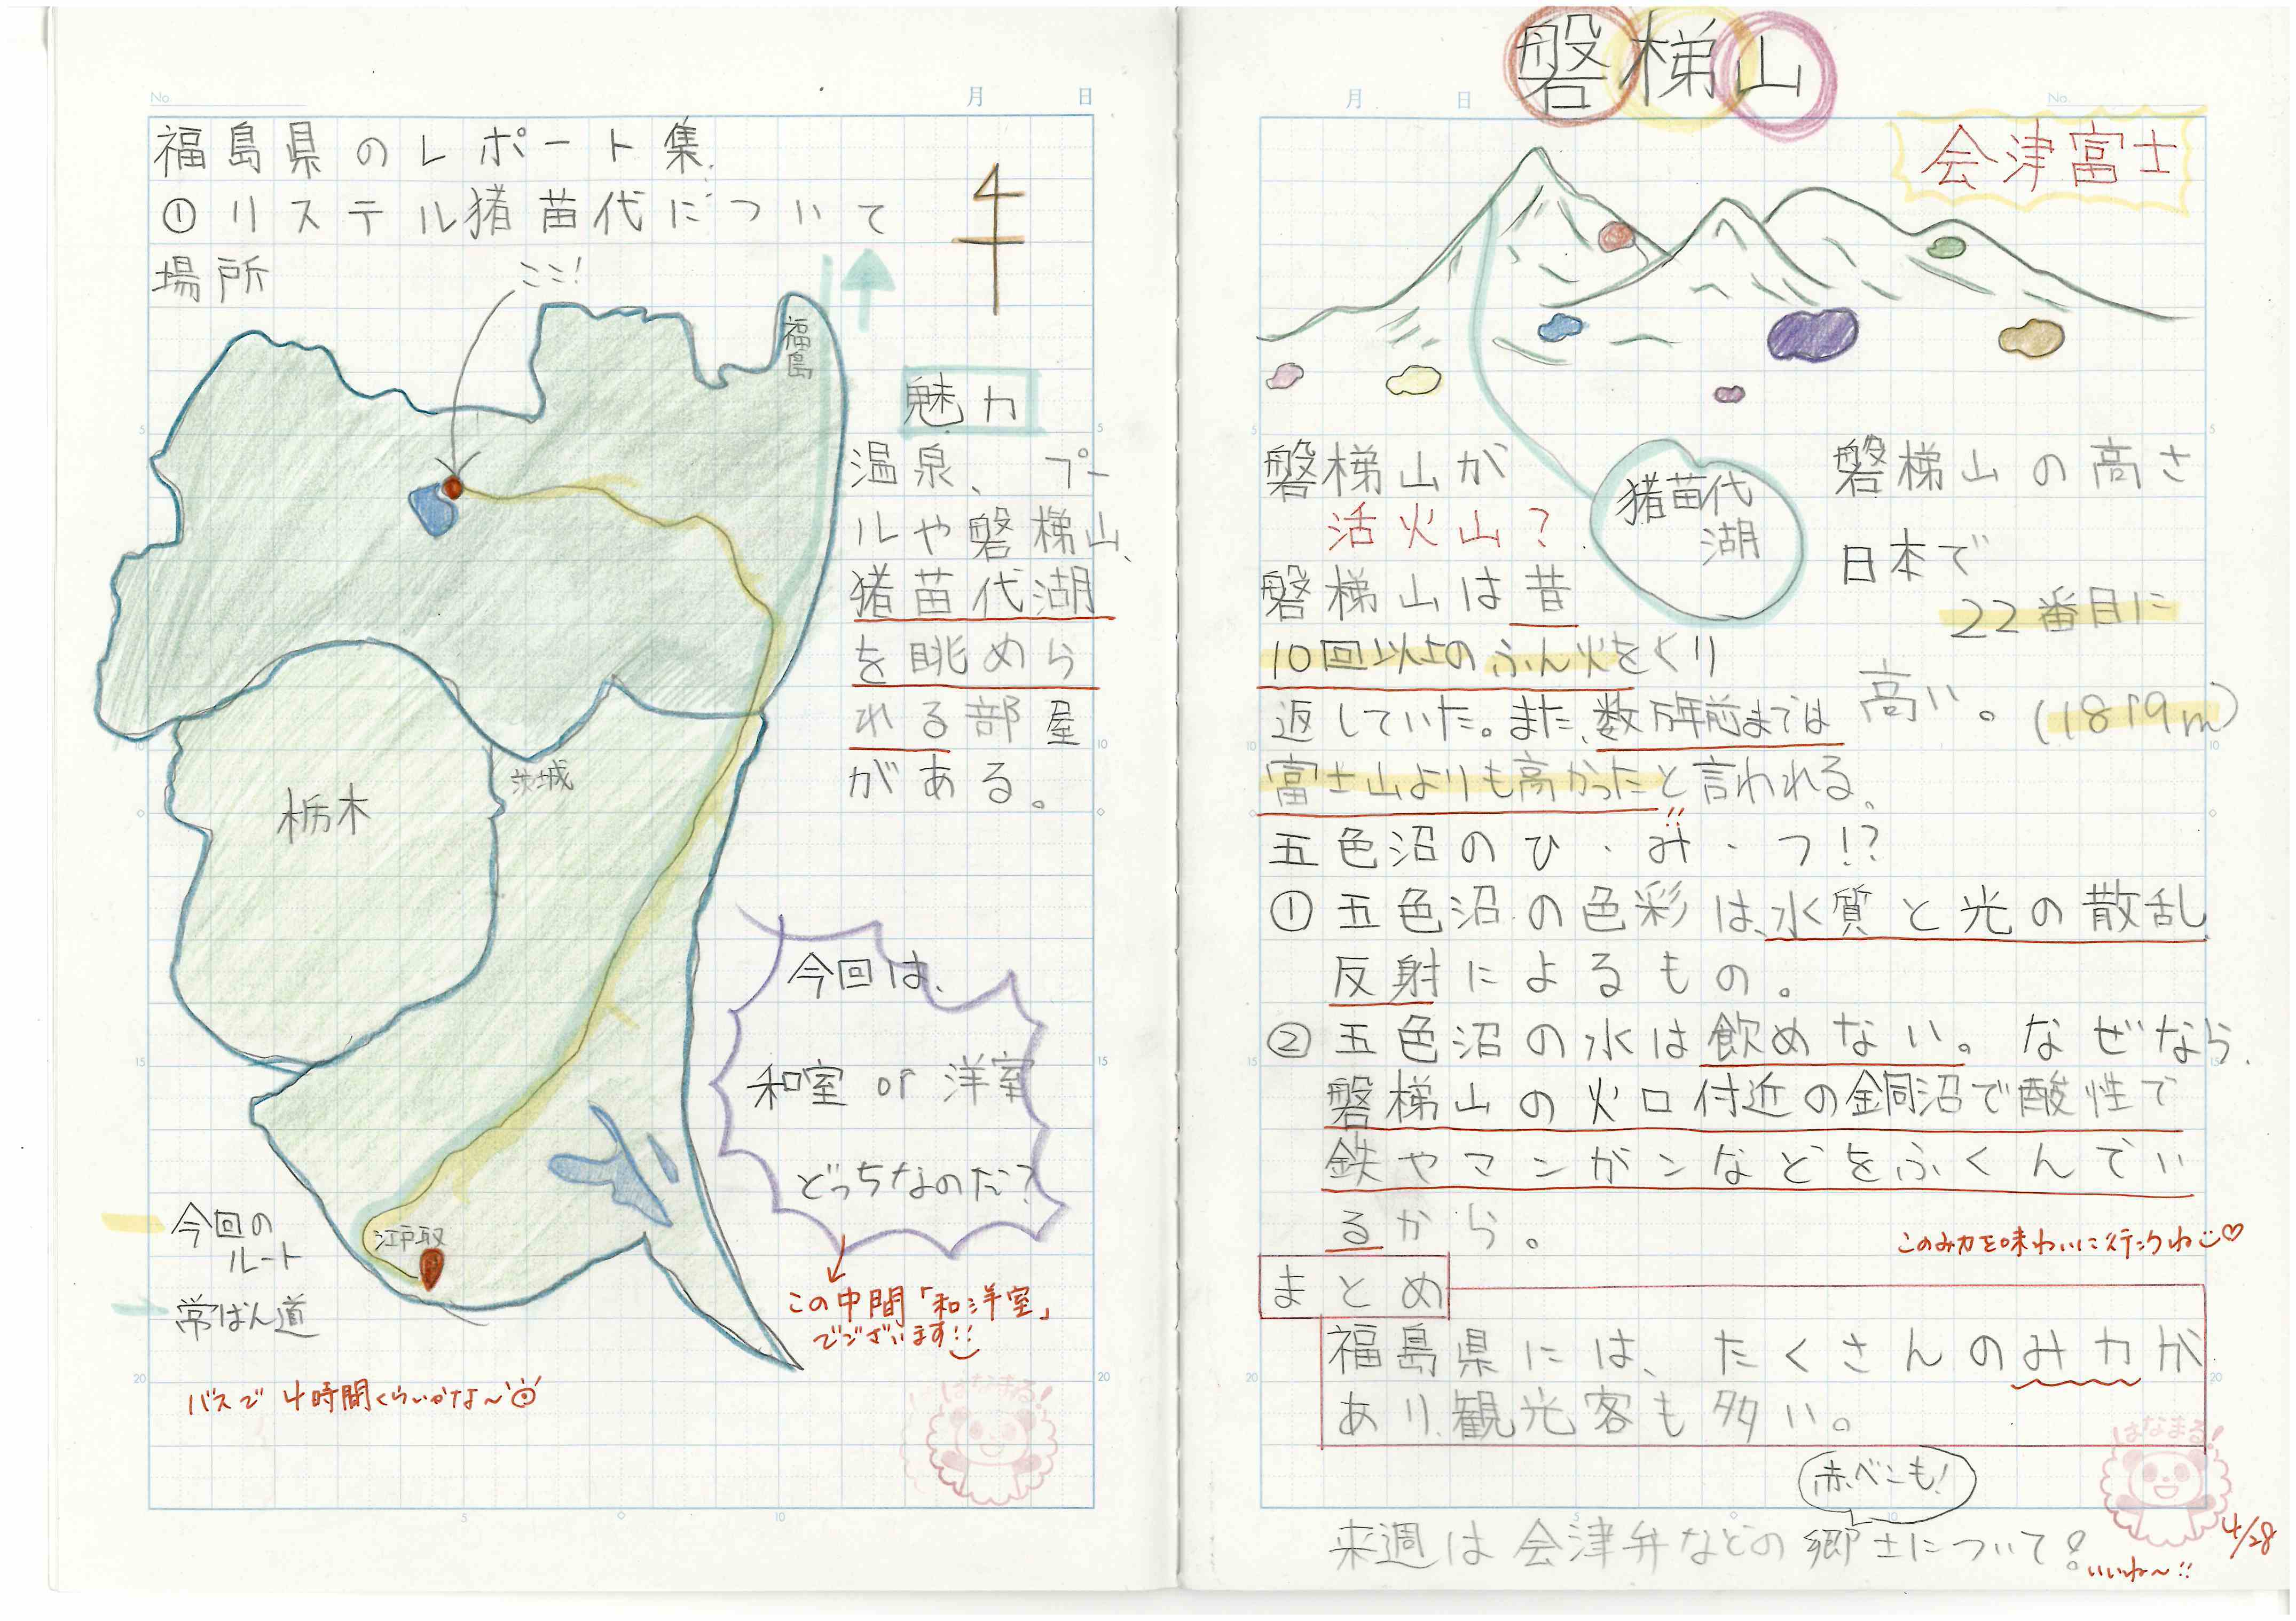 No.
月 日
福島県のレポート集
①リステル猪苗代について
場所
ここ!
福島
魅力
温泉、プー
ルや磐梯山、
猪苗代湖
を眺めら
れる部屋
がある。
栃木
茨城
今回は、
和室 or 洋室
どっちなのだ?
この中間「和洋室」
でございます!!
江戸取
今回の
ルート
常ばん道
バスで4時間くらいかな〜
はなまる!
5
10
15
20
5
10
磐梯山
月 日
No.
会津富士
猪苗代
湖
磐梯山が
活火山?
磐梯山は昔
10回以上のふん火をくり
返していた。また、数万年前までは
富士山よりも高かったと言われる。
磐梯山の高さ
日本で
22番目に
高い。(1819m)
五色沼のひ・み・つ!?
①五色沼の色彩は、水質と光の散乱
反射によるもの。
②五色沼の水は飲めない。なぜなら、
磐梯山の火口付近の銅沼で酸性で
鉄やマンガンなどをふくんでい
るから。
このみ力を味わいに行こうね♡
まとめ
福島県には、たくさんのみ力が
あり、観光客も多い。
はなまる!
赤べこも!
来週は会津弁などの郷土について!
いいね〜!!
4/28
5
10
15
20
5
10